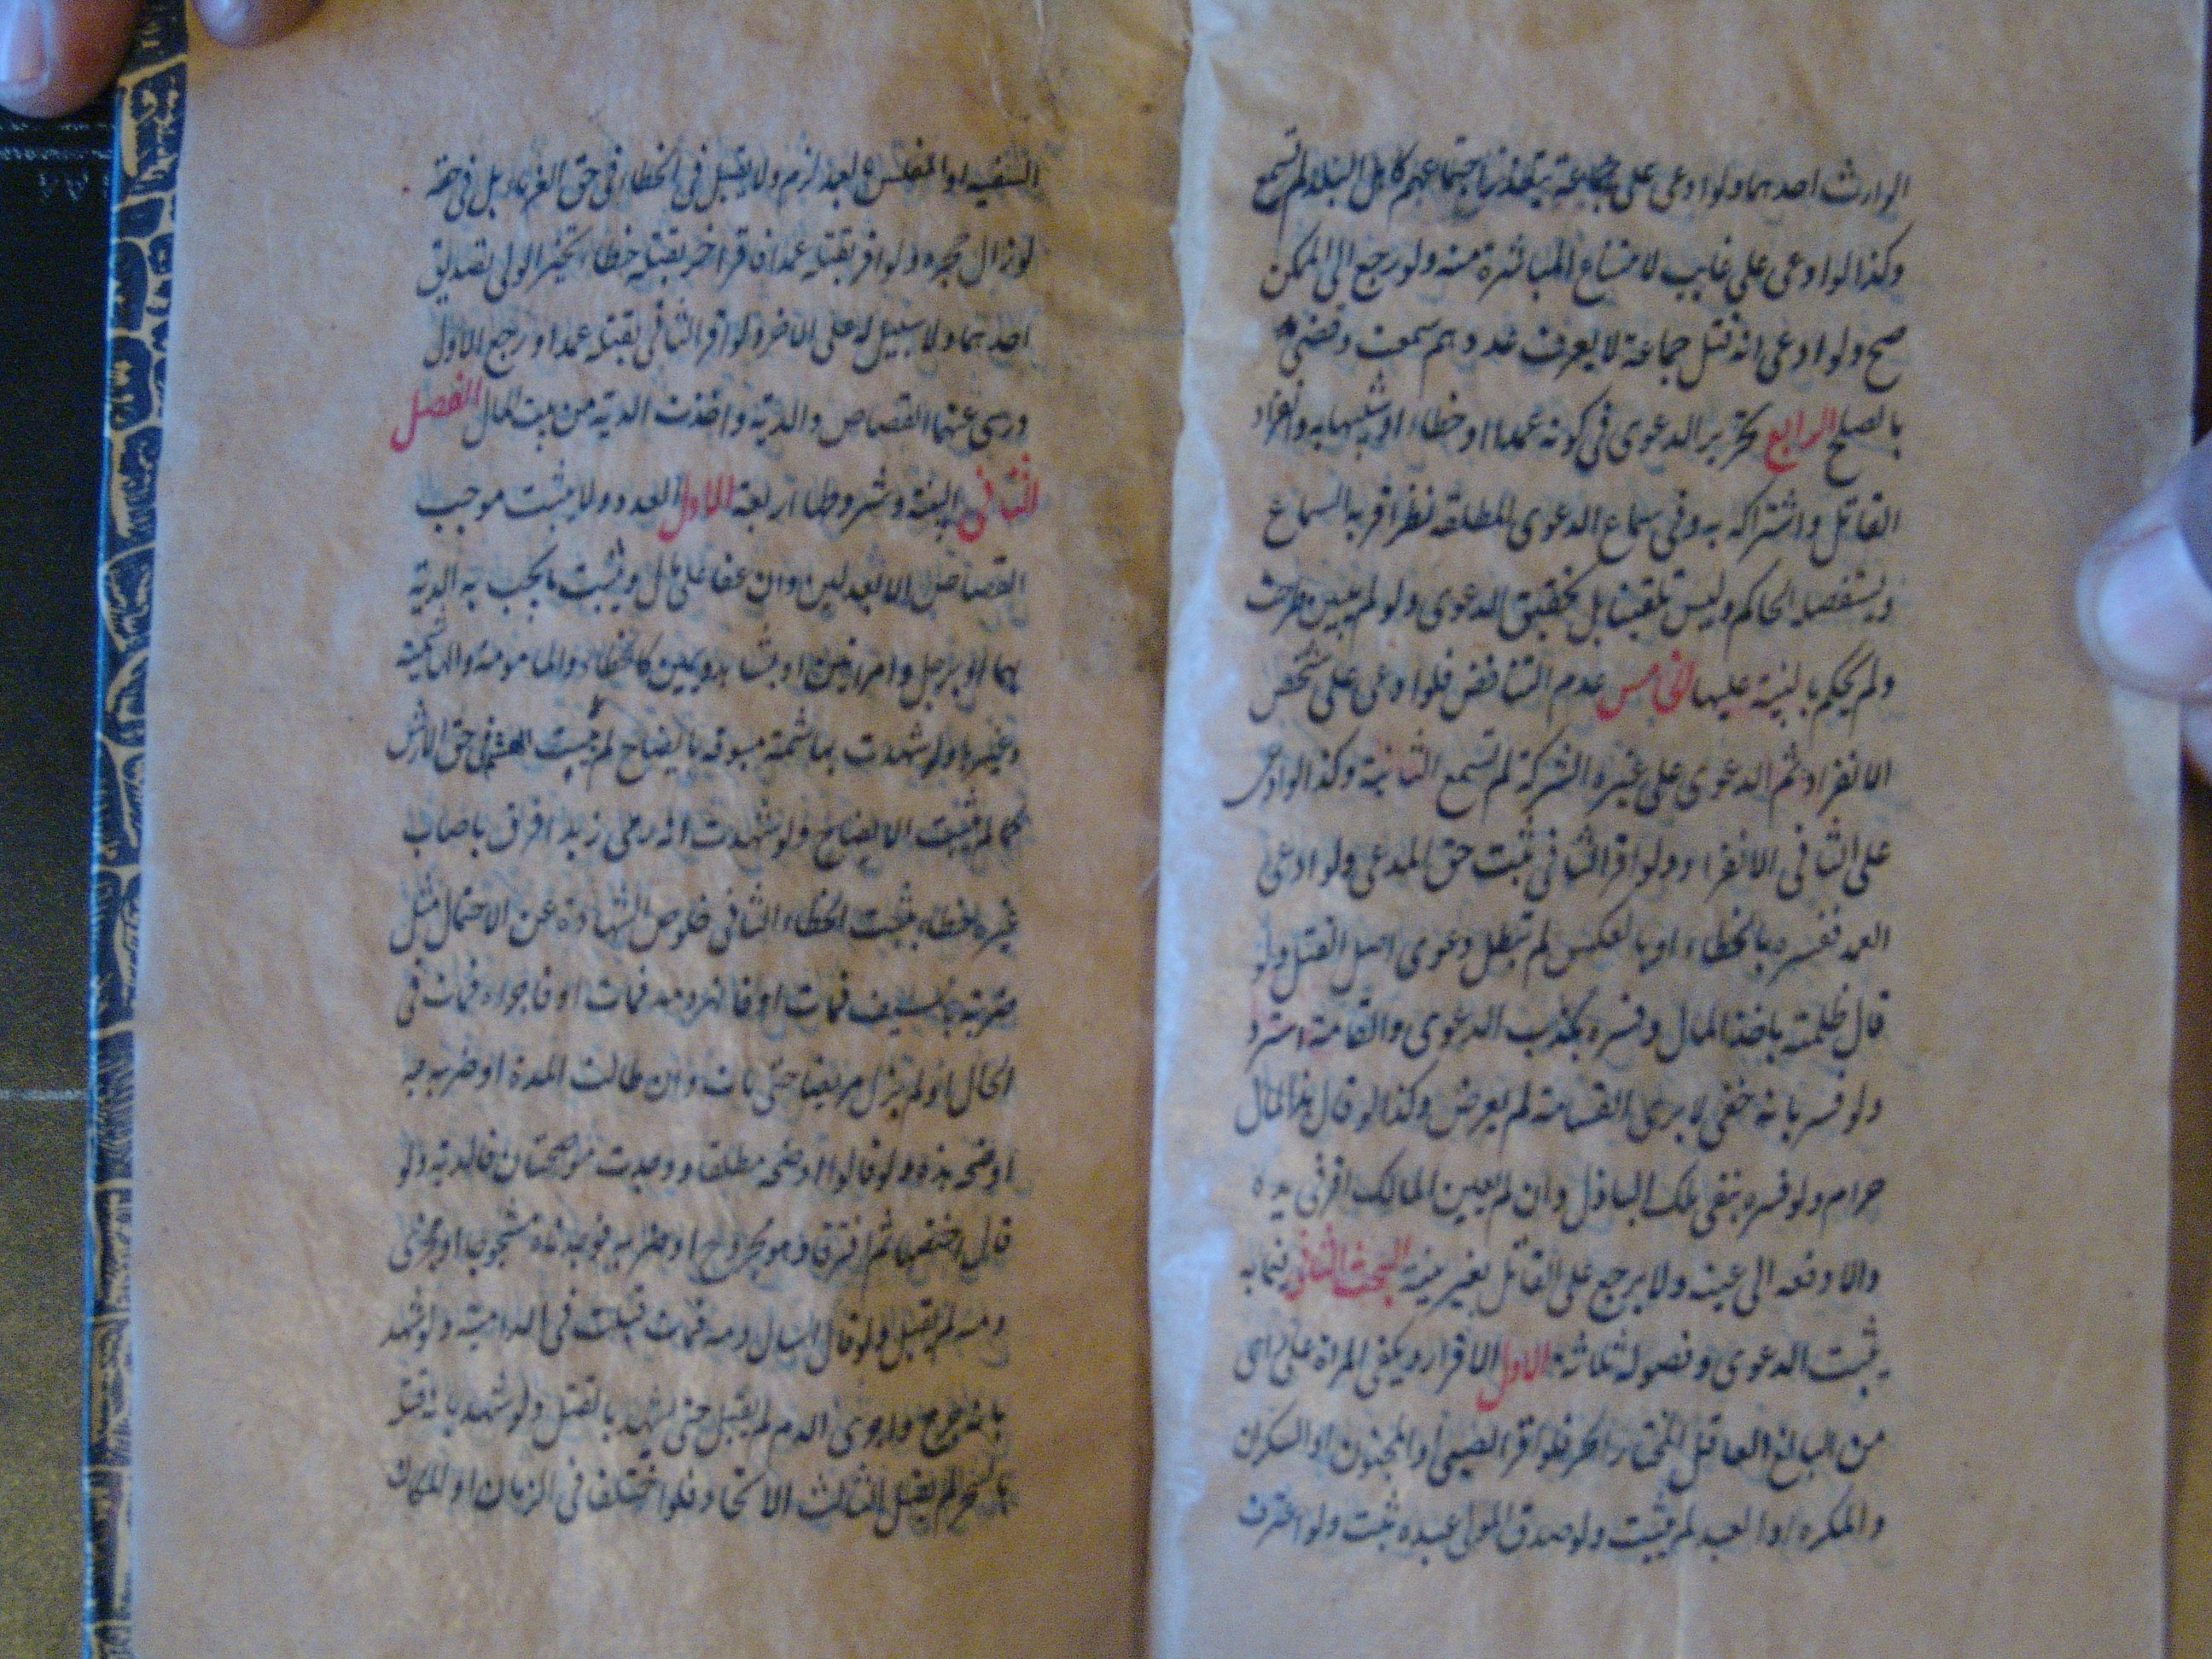 الوارث احدهما ولو ادعى على جماعة يتعذر اجتماعهم كاهل البلد لم تسمع
وكذا لو ادعى على غايب لامتناع المباشرة منه ولو رجع الى الممكن
صح ولو ادعى انه قتل جماعة لا يعرف عددهم سمعت وقضى
بالصلح الرابع تحرير الدعوى فى كونه عمدا او خطاء او شبيها به وانفراد
القاتل واشتراكه به وفى سماع الدعوى المطلقه نظر اقربه السماع
ويستفصله الحاكم وليس تلقينا بل تحقيق الدعوى ولو لم يبين طرحت
ولم يحكم بالبينة عليها الخامس عدم التناقض فلو ادعى على شخص
الانفراد ثم الدعوى على غيره الشركة لم تسمع الثانية وكذا لو ادعى
على الثانى الانفراد ولو اقر الثانى ثبت حق المدعى ولو ادعى
العمد ففسره بالخطاء او بالعكس لم تبطل دعوى اصل القتل ولو
قال ظلمته باخذ المال وفسره بكذب الدعوى والقسامة استرد
ولو فسر بانه حنفى لا يرى القسامة لم يعرض وكذا لو قال هذا المال
حرام ولو فسره بنفى ملك الباذل وان لم يعين المالك اقر فى يده
والا دفعه الى عينه ولا يرجع على القاتل بغير بينة البحث الثانى فيما به
يثبت الدعوى وفصوله ثلاثه الاول الاقرار ويكفى المرة على راى
من البالغ العاقل المختار الحر فلو اقر الصبى او المجنون او السكران
والمكره او العبد لم يثبت ولو صدق المولى عبده ثبت ولو اعترف
السفيه او المفلس بالعمد لزم ولا يقبل فى الخطاء فى حق الغرماء بل فى حقه
لو زال حجره ولو اقر بقتله عمدا فاقر اخر بقتله خطاء تخير الولى بتصديق
احدهما ولا سبيل له على الاخر ولو اقر الثانى بقتله عمدا ورجع الاول
درى عنهما القصاص والدية واخذت الدية من بيت المال الفصل
الثانى البينة وشروطها اربعة الاول العدد ولا يثبت موجب
القصاص الا بعدلين وان عفا على مال ويثبت ما يجب به الدية
بهما او برجل وامراتين او بشاهد ويمين كالخطاء والمامومة والهاشمة
وغيره ولو شهدت بهاشمة مسبوقه بايضاح لم يثبت الهشم فى حق الارش
كما لم يثبت الايضاح ولو شهدت انه رمى زيدا فمرق باصاب
غيره خطاء يثبت الخطاء الثانى خلوص الشهادة عن الاحتمال مثل
ضربه بالسيف فمات او فانهر دمه فمات او فاجراه فمات فى
الحال او لم يزل مريضا حتى مات وان طالت المدة او ضربه
اوضحه هذه ولو قالوا اوضحه مطلقا ووجدت موضحتان فالدية ولو
قال اختصما ثم افترقا وهو مجروح او ضربه فوجدناه مشجوجا او يجرى
دمه لم يقبل ولو قال اسال دمه فمات قبلت فى الدامية ولو شهد
بانه جرح واجرى الدم لم يقبل حتى يشهد بالقتل ولو شهد بانه قتله
بالسحر لم يقبل الثالث الاتحاد فلو اختلف فى الزمان او المكان